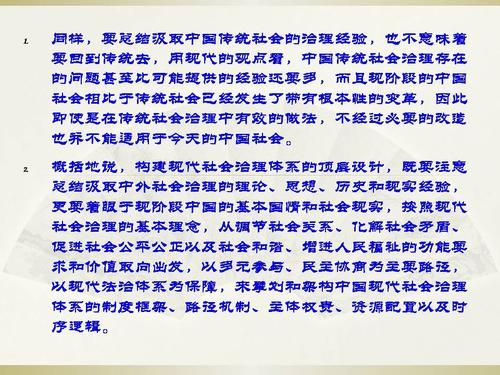 1. 同样，要总结汲取中国传统社会的治理经验，也不意味着
要回到传统去，用现代的观点看，中国传统社会治理存在
的问题甚至比可能提供的经验还要多，而且现阶段的中国
社会相比于传统社会已经发生了带有根本性的变革，因此
即使是在传统社会治理中有效的做法，不经过必要的改造
也并不能适用于今天的中国社会。
2. 概括地说，构建现代社会治理体系的顶层设计，既要注意
总结汲取中外社会治理的理论、思想、历史和现实经验，
更要着眼于现阶段中国的基本国情和社会现实，按照现代
社会治理的基本理念，从调节社会关系、化解社会矛盾、
促进社会公平公正以及社会和谐、增进人民福祉的功能要
求和价值取向出发，以多元参与、民主协商为主要路径，
以现代法治体系为保障，来擘划和架构中国现代社会治理
体系的制度框架、路径机制、主体权责、资源配置以及时
序逻辑。